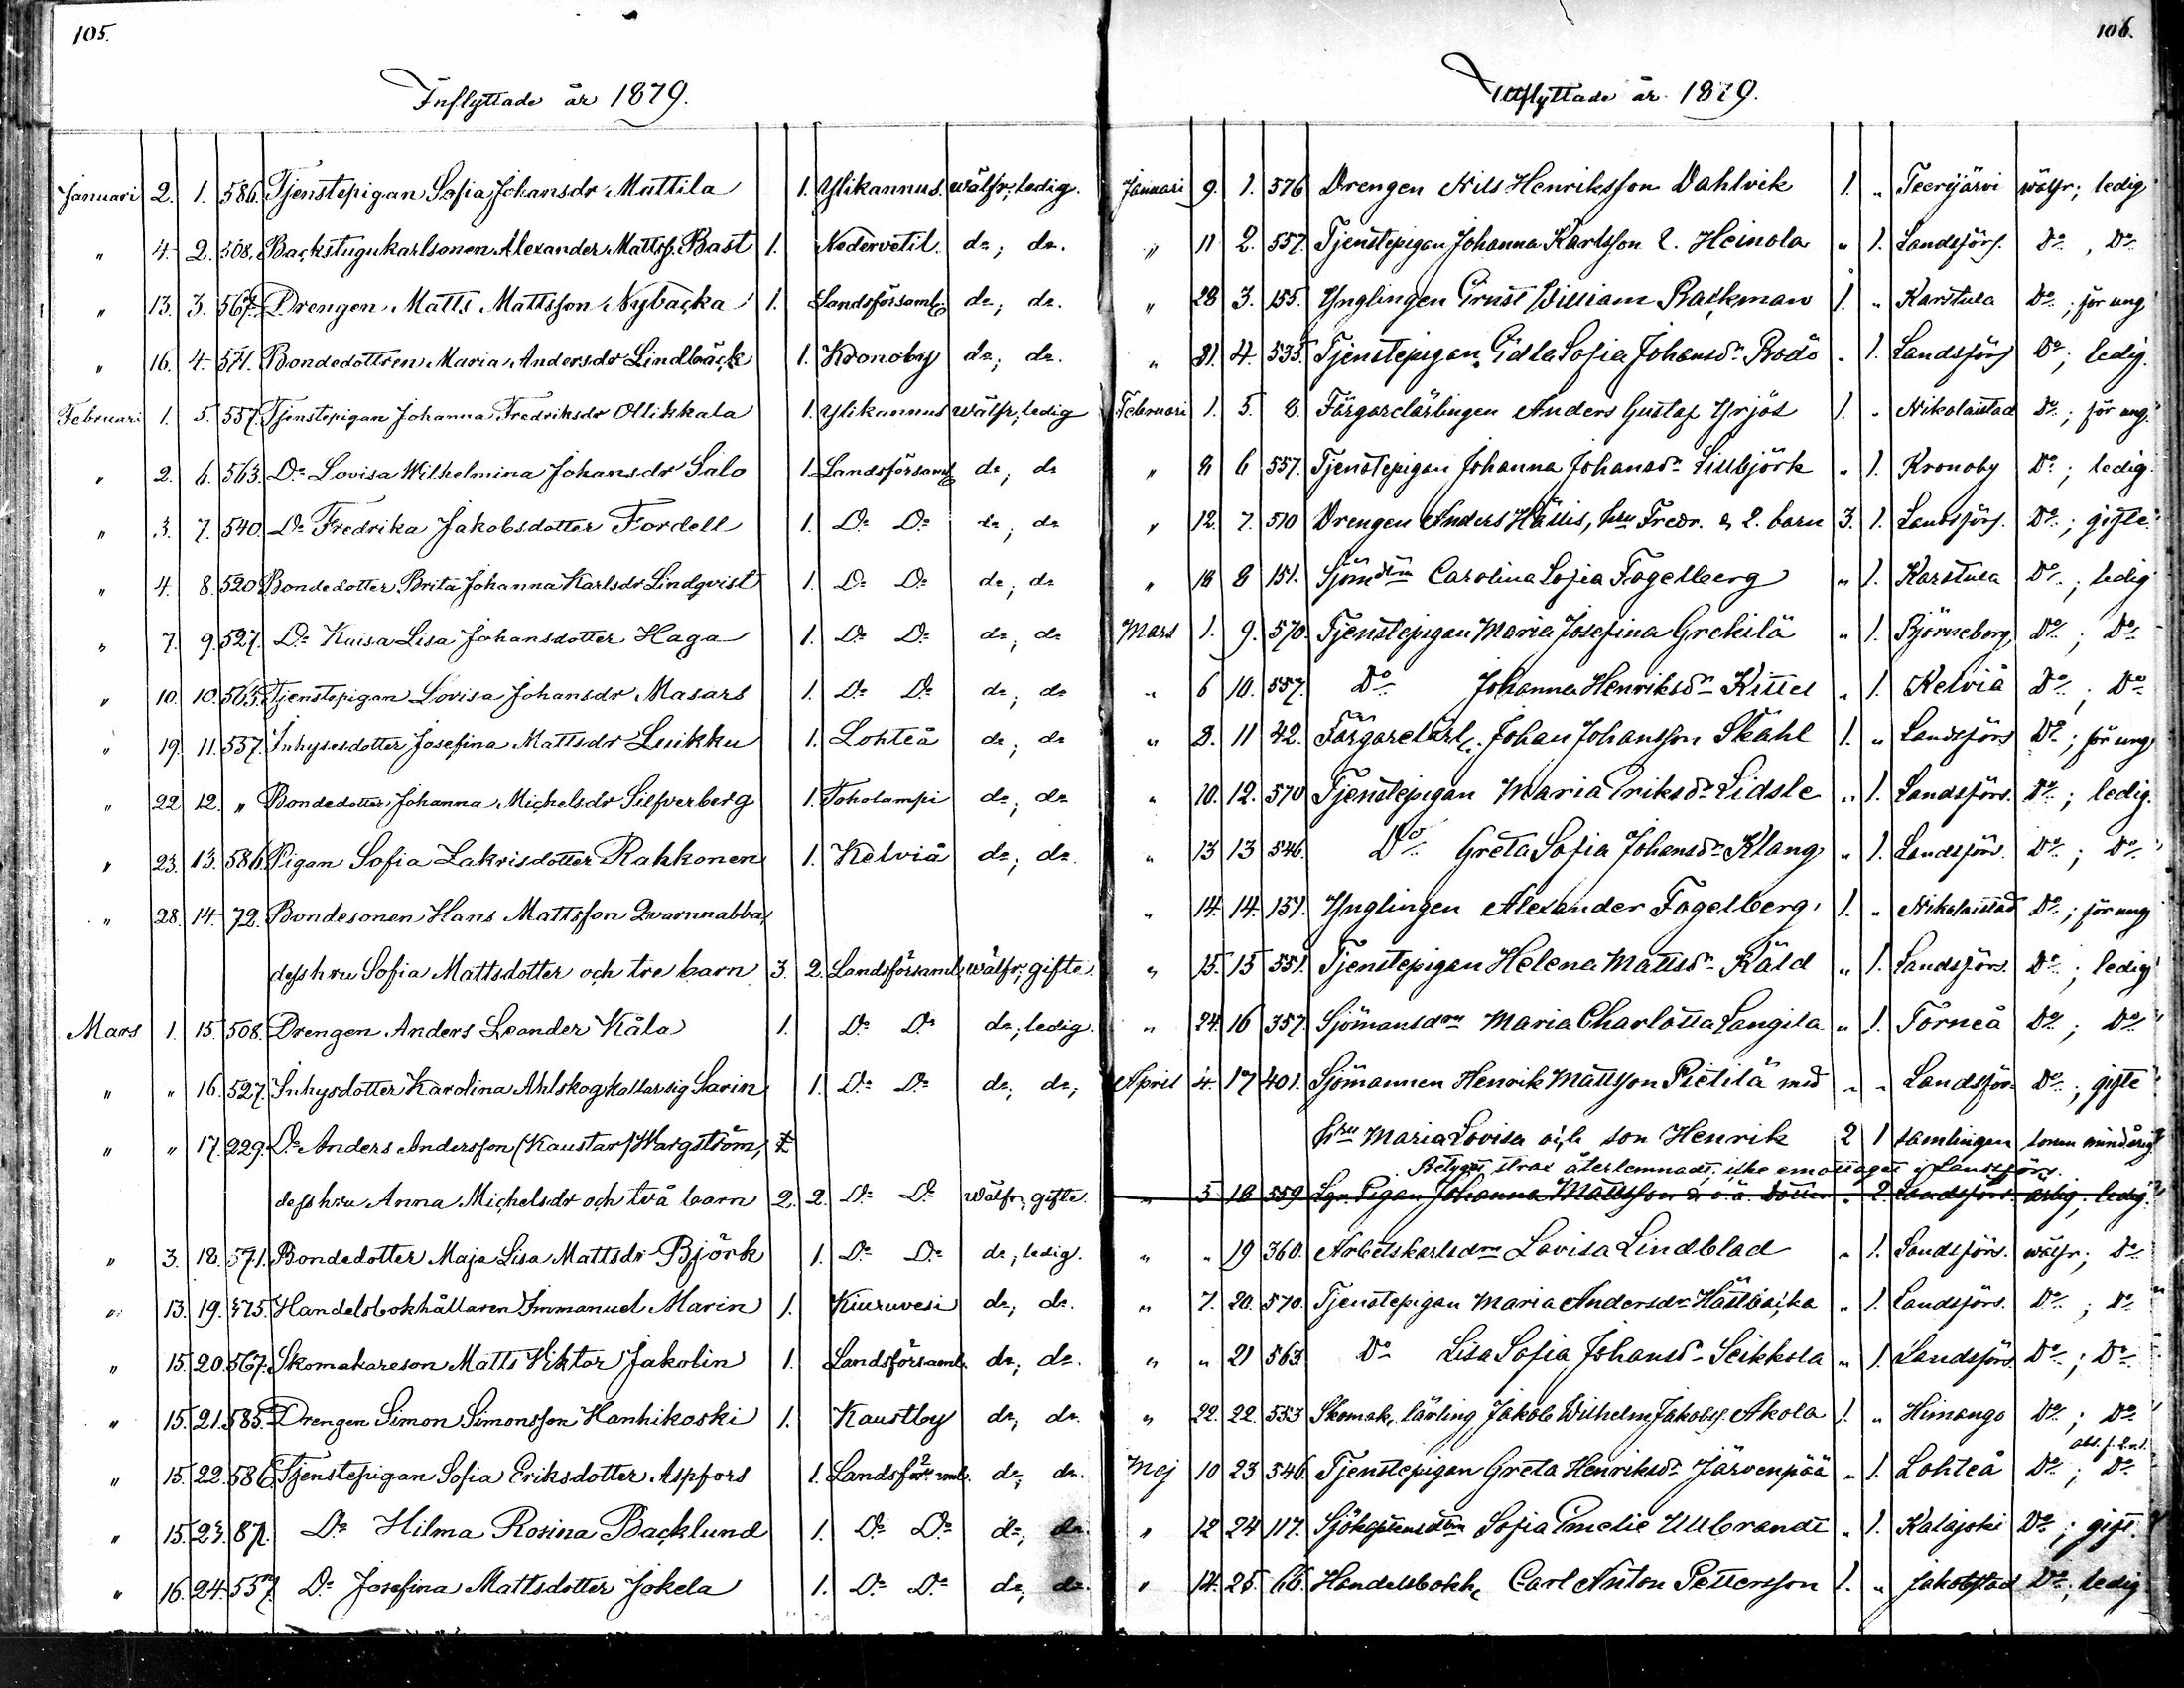 105.
Inflyttade år 1879.
Januari 2. 1. 586. Tjenstepigan Sofia Johansdr Mattila 1. Ylikannus. wälfr; ledig.
" 4. 2. 508. Backstugukarlsonen Alexander Mattsf. Bast 1. Nedervetil. do; do.
" 13. 3. 567. Drengen Matts Mattsson Nybacka 1. Landsförsaml. do; do.
" 16. 4. 571. Bondedottren Maria Andersdr Lindbäck 1. Kronoby do; do.
Februari 1. 5. 557. Tjenstepigan Johanna Fredriksdr Ollikkala 1. Ylikannus wälfr; ledig
" 2. 6. 563. Do Lovisa Wilhelmina Johansdr Salo 1. Landsförsaml do; do
" 3. 7. 540. Do Fredrika Jakobsdotter Fordell 1. Do Do do; do
" 4. 8. 520 Bondedotter Brita Johanna Karlsdr Lindqvist 1. Do Do do; do
" 7. 9. 527. Do Kaisa Lisa Johansdotter Haga 1. Do Do do; do
" 10. 10. 563. Tjenstepigan Lovisa Johansdr Masars 1. Do Do do; do
" 19. 11. 557. Inhysesdotter Josefina Mattsdr Luikku 1. Lohteå do; do
" 22 12. " Bondedotter Johanna Michelsdr Silfverberg 1. Toholampi do; do
" 23. 13. 586. Pigan Sofia Zakrisdotter Rahkonen 1. Kelviå do; do.
" 28. 14. 72. Bondesonen Hans Mattsson Qvarnnabba,
dess hru Sofia Mattsdotter och tre barn 3. 2. Landsförsaml. wälfr; gifte.
Mars 1. 15. 508. Drengen Anders Leander Kåla 1. Do Do do; ledig.
" " 16. 527. Inhysdotter Karolina Ahlskog kallar sig Sarin 1. Do Do do; do;
" " 17. 229. Do Anders Andersson (Kaustar) Wargström,
dess hru Anna Michelsdr och två barn 2. 2. Do Do wälfr; gifte.
" 3. 18. 571. Bondedotter Maja Lisa Mattsdr Björk 1. Do Do do; ledig.
" 13. 19. 475. Handelsbokhållaren Immanuel Marin 1. Kiuruvesi do; do.
" 15. 20. 567. Skomakareson Matts Viktor Jakolin 1. Landsförsaml. do; do.
" 15. 21. 585. Drengen Simon Simonsson Hanhikoski 1. Kaustby do; do.
" 15. 22. 586. Tjenstepigan Sofia Eriksdotter Aspfors 1. Landsförsaml. do; do.
" 15. 23. 87. Do Hilma Rosina Backlund 1. Do Do do; do
" 16. 24. 557. Do Josefina Mattsdotter Jokela 1. Do Do do; do.
106.
Utflyttade år 1879.
Januari 9. 1. 576 Drengen Nils Henriksson Dahlvik 1. " Teerijärvi wälfr; ledig
" 11 2. 557. Tjenstepigan Johanna Karlsson l. Heinola " 1. Landsförs. Do, Do
" 28 3. 155. Ynglingen Ernst William Backman 1. " Karstula Do; för ung
" 31. 4. 535. Tjenstepigan Edla Sofia Johansdr Bodö " 1. Landsförs Do; ledig.
Februari 1. 5. 8. Färgarelärlingen Anders Gustaf Yrjös 1. " Nikolaistad Do; för ung.
" 8 6 557. Tjenstepigan Johanna Johansdr Sillbjörk " 1. Kronoby Do; ledig.
" 12. 7. 510 Drengen Anders Hällis, hru Fredr. & 2. barn 3. 1. Landsförs. Do; gifte.
" 18 8 151. Sjömdtrn Carolina Sofia Fogelberg " 1. Karstula Do; ledig
Mars 1. 9. 570. Tjenstepigan Maria Josefina Grekilä " 1. Björneborg, Do; Do
" 6 10. 557. Do Johanna Henriksdr Kissel " 1. Kelviå Do; Do
" 8. 11 42. Färgarelärl. Johan Johansson Ståhl 1. " Landsförs Do; för ung
" 10. 12. 570 Tjenstepigan Maria Eriksdr Lidsle " 1. Landsförs. Do; ledig.
" 13 13 546. Do Greta Sofia Johansdr Klang " 1. Landsförs. Do; Do
" 14. 14. 151. Ynglingen Alexander Fogelberg 1. " Nikolaistad Do; för ung
" 15. 15 551. Tjenstepigan Helena Mattsdr Käld " 1. Landsförs. Do; ledig
" 24. 16 357. Sjömansdrn Maria Charlotta Langila " 1. Torneå Do; Do
April 4. 17 401. Sjömannen Henrik Mattsson Pietilä med " " Landsför- Do; gifte
hru Maria Lovisa och son Henrik 2 1 samlingen sonen minderårig
Betyget strax återlemnadt, icke emottaget i Landsförs.
" 5 18 559 Lgn. Pigan Johanna Mattsson & o. ä. dotter " 2. Landsförs. ärlig, ledig.
" " 19 360. Arbetskarlsdrn Lovisa Lindblad " 1. Landsförs. wälfr; Do
" 7. 20. 570. Tjenstepigan Maria Andersdr Hästbacka " 1. Landsförs. Do; Do
" " 21 563 Do Lisa Sofia Johansdr Seikkola " 1. Landsförs. Do; Do
" 22. 22. 553 Skomak. lärling Jakob Wilhelm Jakobsf. Akola 1. " Himango Do; Do
Maj 10 23 546. Tjenstepigan Greta Henriksdr Järvenpää " 1. Lohteå Do; Do
" 12 24 117. Sjökaptensdtrn Sofia Emelie Ullbrandt " 1. Kalajoki Do; gift.
" 14. 25. 66. Handelsbokh. Carl Anton Pettersson 1. " Jakobstad Do; ledig